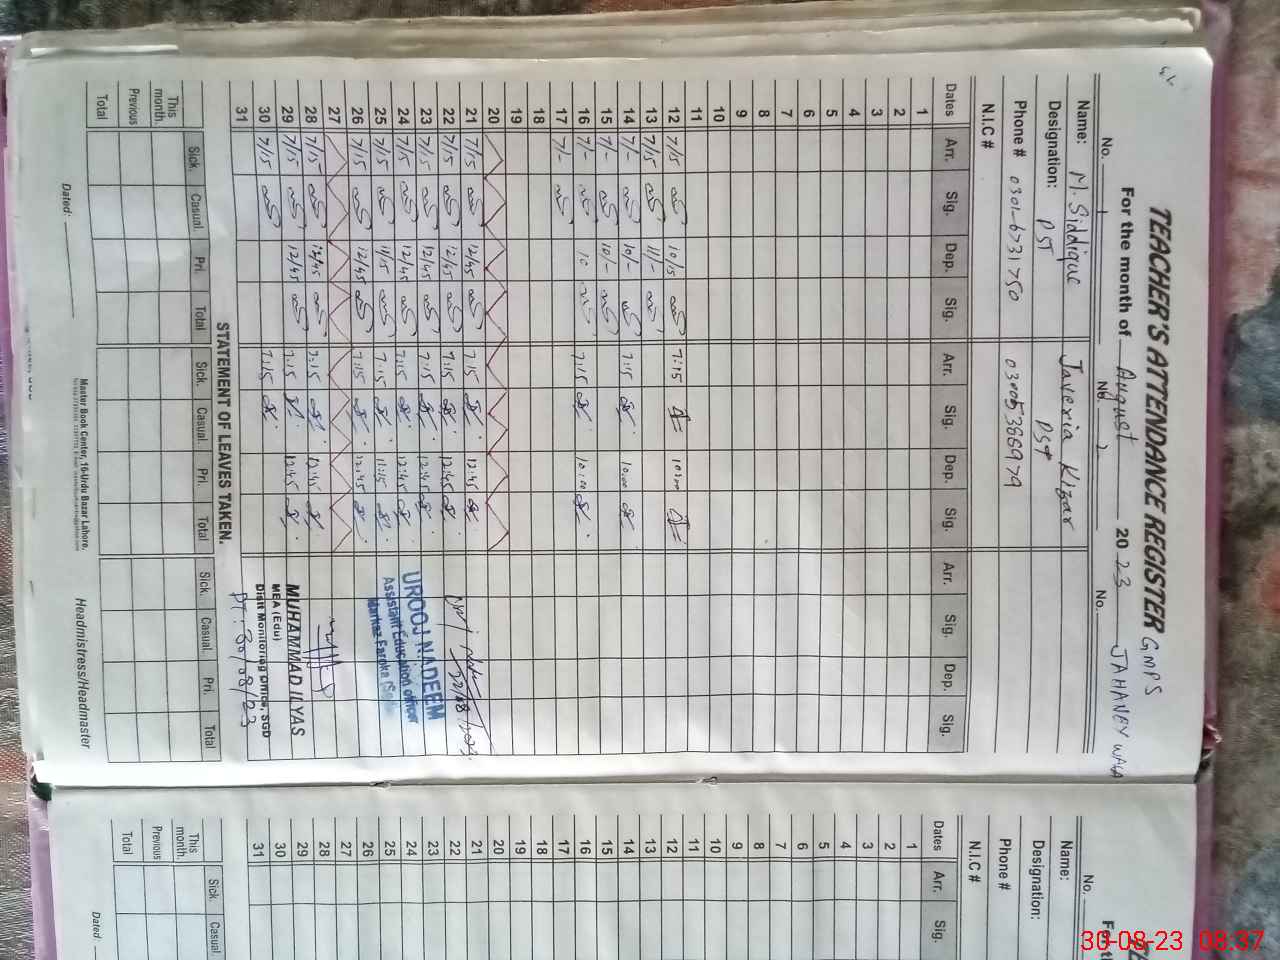 TEACHER'S ATTENDANCE REGISTER GMPS
For the month of August 2023 JAHANEY WALA
No. 1 No. 2 No.
Name: M. Siddique Javeria Kizar
Designation: PST PST
Phone # 0301-6731750
N.I.C #
Dates Arr. Sig. Dep. Sig. Arr. Sig. Dep. Sig. Arr. Sig. Dep. Sig.
1
2
3
4
5
6
7
8
9
10
11
12 7/15 10/15 7:15 10:00
13 7/15 11/-
14 7/- 10/- 7:15 10:00
15 7/- 10/-
16 7/- 10 7:15 10:00
17 7/-
18
19
20
21 7/15 12/45 7:15 12:45
22 7/15 12/45 7:15 12:45
23 7/15 12/45 7:15 12:45
24 7/15 12/45 7:15 12:45
25 7/15 11/15 7:15 11:15
26 7/15 12/45 7:15 12:45
27
28 7/15 12/45 7:15 12:45
29 7/15 12/45 7:15 12:45
30 7/15 7:15
31
UROOJ NADEEM
Assistant Education officer
Markaz Faroka
MUHAMMAD ILYAS
MEA (Edu)
Distt Monitoring Office, SGD
DT: 30/08/23
STATEMENT OF LEAVES TAKEN.
Sick. Casual. Pri. Total Sick. Casual. Pri. Total Sick. Casual. Pri. Total
This month.
Previous
Total
Dated:
Master Book Center, 16-Urdu Bazar Lahore.
Headmistress/Headmaster
No.
Name:
Designation:
Phone #
N.I.C #
Dates Arr. Sig.
1
2
3
4
5
6
7
8
9
10
11
12
13
14
15
16
17
18
19
20
21
22
23
24
25
26
27
28
29
30
31
Sick. Casual.
This month.
Previous
Total
Dated:
30-08-23 08:37